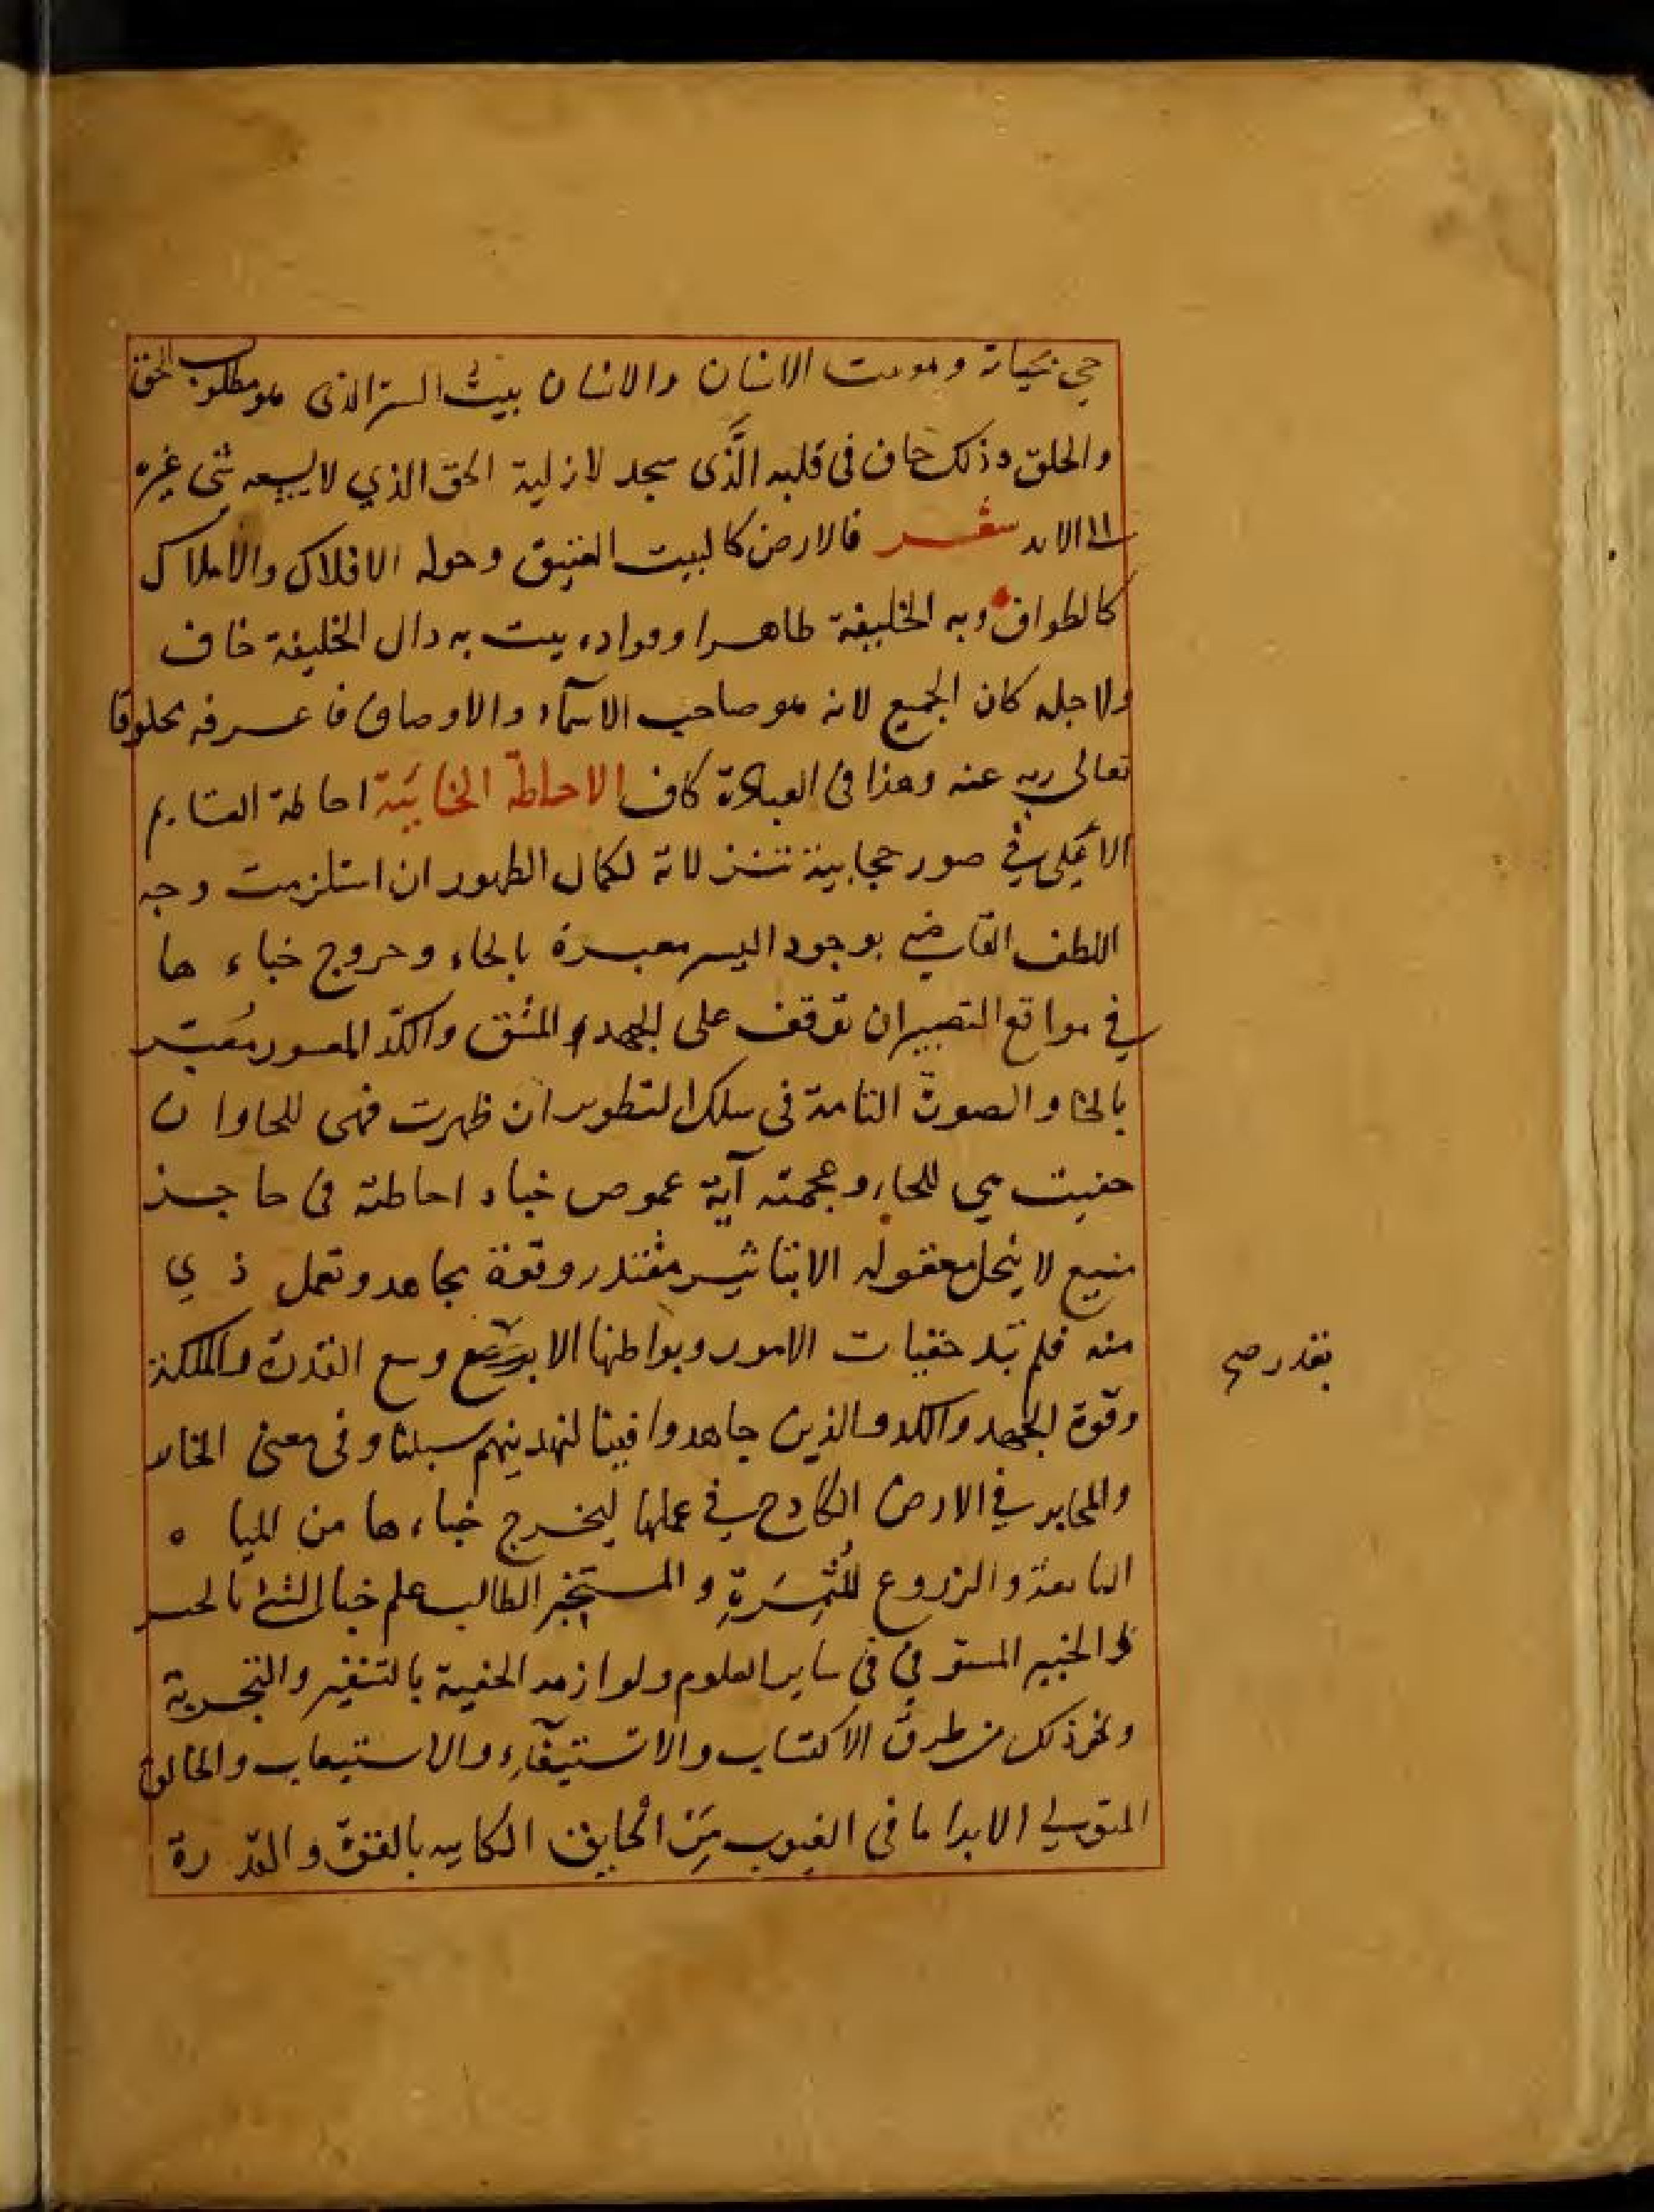 حي بحياته وهو بيت الانسان والانسان بيت السر الذى هو مطلوب الحق
والخلق وذلك خاف فى قلبه الَّذى سجد لازلية الحق الذي لا يسعه شى غيره
الى الابد شعر فالارض كالبيت العتيق وحوله الافلاك والاملاك
كالطواف وبه الخليفة طاهرا وفواده بيت به دال الخليفة خاف
ولاجله كان الجميع لانه هو صاحب الاسمآء والاوصاف فاعرفه مخلوقا
تعالى ربه عنه وهذا فى العبادة كاف الاحاطة الخائيّة احاطة القايم
الاعلى في صور حجابية تنزلاته لكمال الظهور ان استلزمت وجه
اللطف القاضي بوجود اليسر معبرة بالحاء وخروج خباء ها
في مواقع التصيير ان توقف على الجهد والمشق والكدّ المعسور مُعبّر
بالخا والصورة التامة فى سلك التطوير ان ظهرت فهى للحا وان
خفيت هي للخاء وعجمته آية غموض خباء احاطته فى حاجز
منيع لا ينحل معقوله الا بتاثير مقتدر وقوة مجاهد وتعمل ذي
منه فلم تبد خفيات الامور وبواطنها الا بوسع القدرة والملكة
وقوة الجهد والكد والذين جاهدوا فينا لنهدينهم سبلنا وفى معنى الخاء
والمخابر في الارض الكادح في عملها ليخرج خباءها من المياه
النابعة والزروع المُثمِرَةِ والمستخبر الطالب علم خبا الشئ بالحس
والخبير المستوفي في ساير العلوم ولوازمه الخفية بالتنفير والتجربة
ونحو ذلك من طرق الاكتساب والاستيفآء والاستيعاب والخالق
المتولي الابدا ما فى الغيوب مِنَ الحقايق الكاينه بالقوة والقدرة
بقدر صح